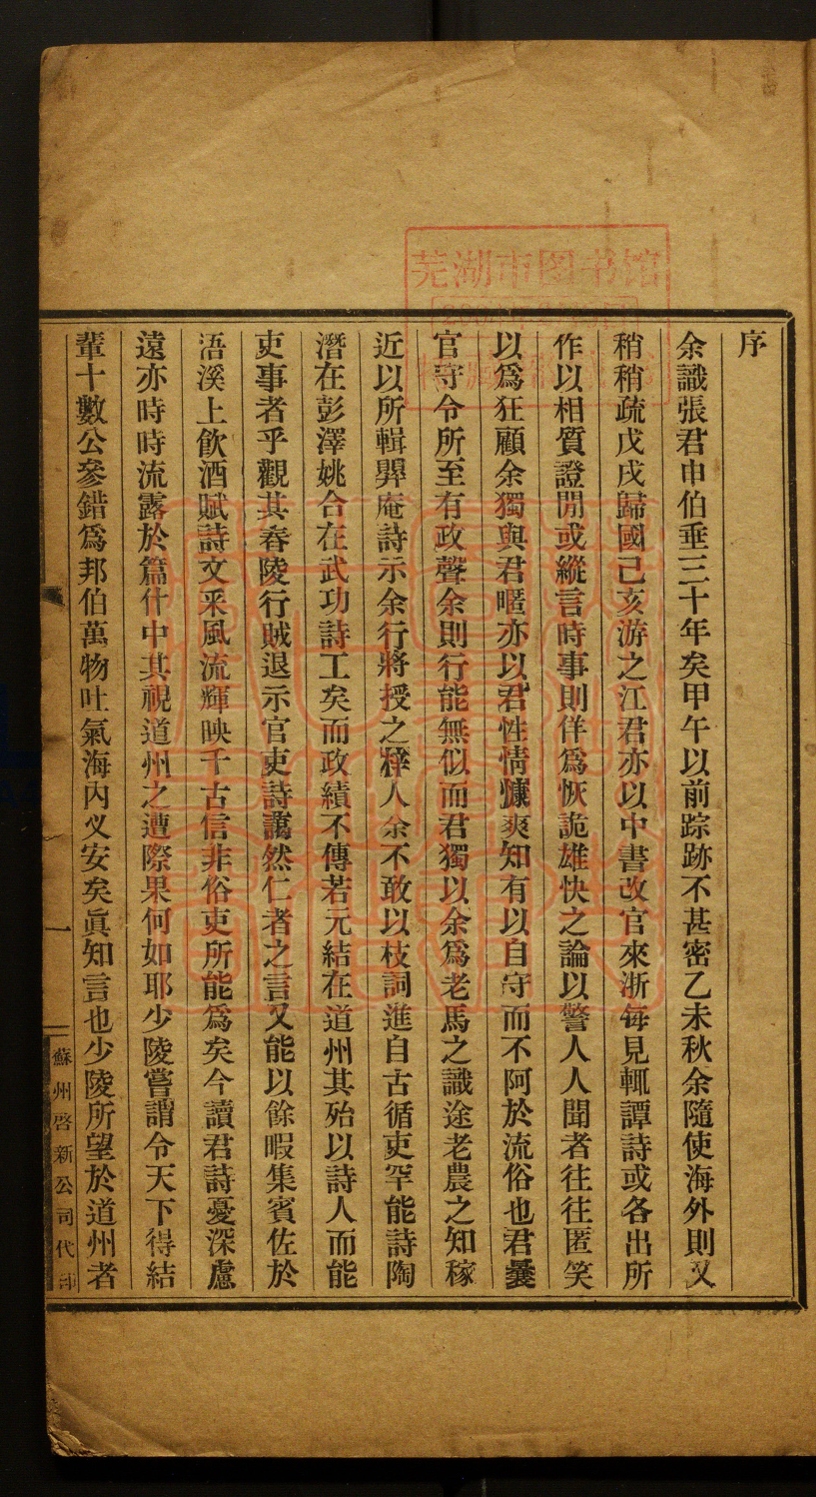 序
余識張君申伯垂三十年矣甲午以前踪跡不甚密乙未秋余隨使海外則又
稍稍疏戊戌歸國己亥游之江君亦以中書改官來浙每見輒譚詩或各出所
作以相質證閒或縱言時事則佯爲恢詭雄快之論以警人人聞者往往匿笑
以爲狂顧余獨與君暱亦以君性情慷爽知有以自守而不阿於流俗也君曩
官守令所至有政聲余則行能無似而君獨以余爲老馬之識途老農之知稼
近以所輯羼庵詩示余行將授之梓人余不敢以枝詞進自古循吏罕能詩陶
潛在彭澤姚合在武功詩工矣而政績不傳若元結在道州其殆以詩人而能
吏事者乎觀其舂陵行賊退示官吏詩藹然仁者之言又能以餘暇集賓佐於
浯溪上飮酒賦詩文釆風流輝映千古信非俗吏所能爲矣今讀君詩憂深慮
遠亦時時流露於篇什中其視道州之遭際果何如耶少陵嘗謂令天下得結
輩十數公參錯爲邦伯萬物吐氣海內乂安矣眞知言也少陵所望於道州者
一
蘇州啓新公司代印
芜湖市图书馆